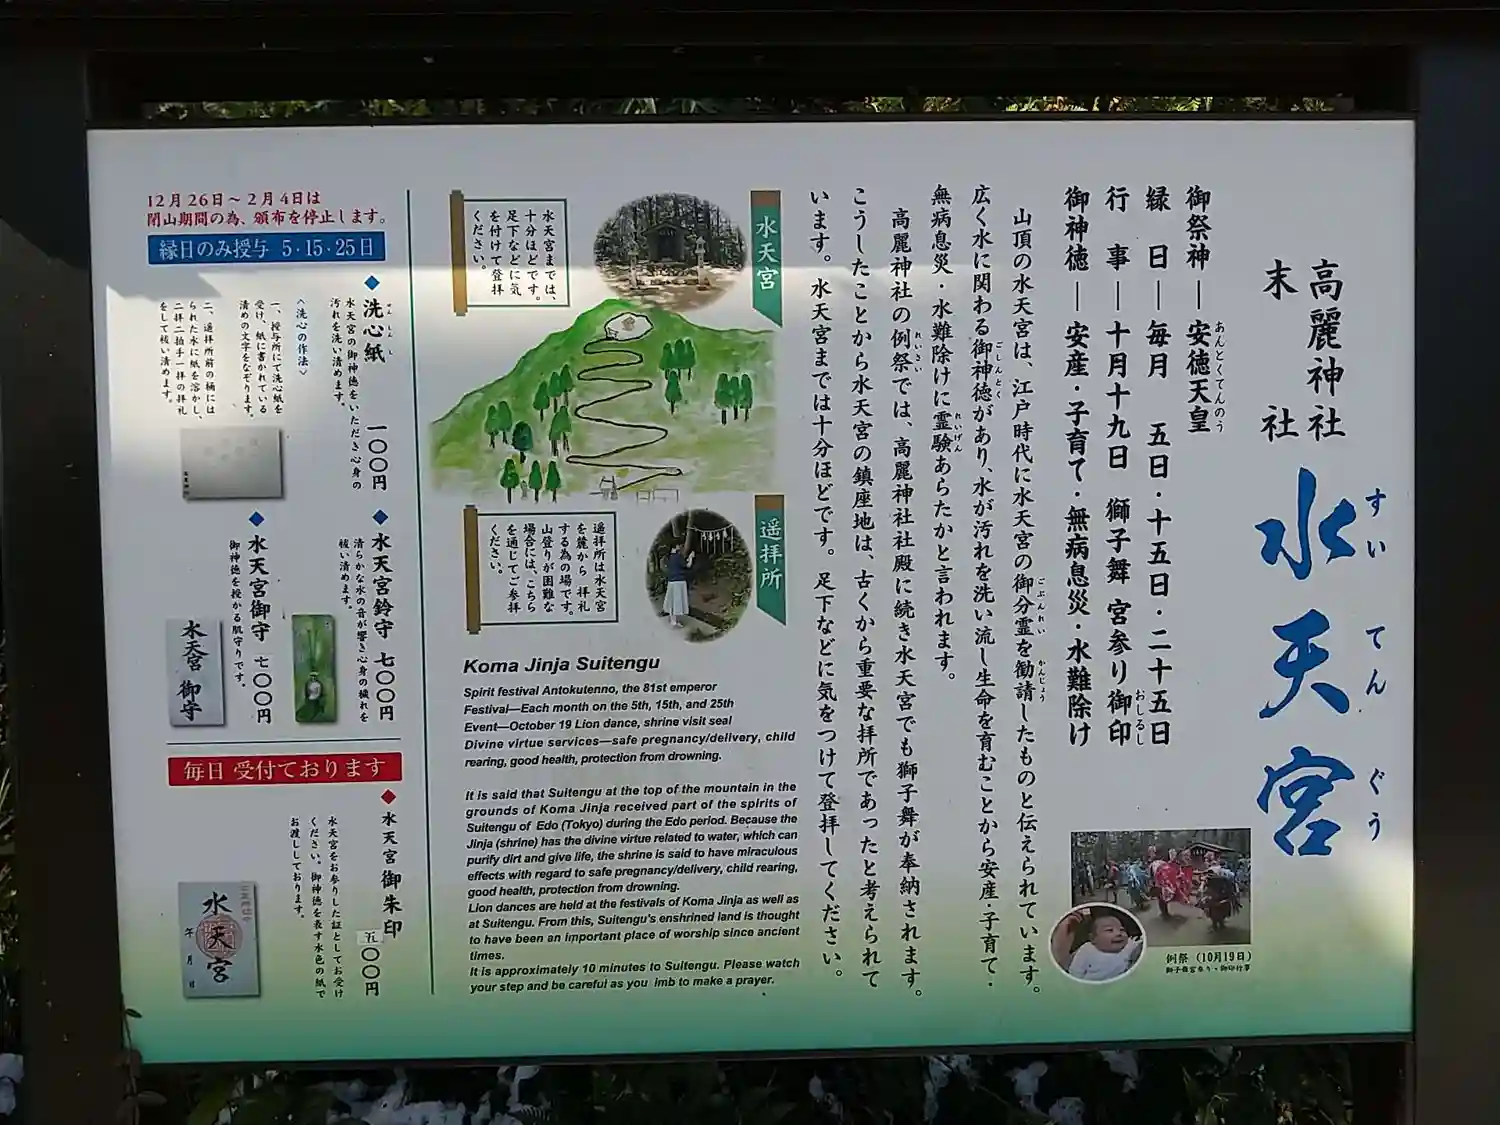 高麗神社
末社
水天宮
すいてんぐう
御祭神―安徳天皇
あんとくてんのう
縁日―毎月 五日・十五日・二十五日
行事―十月十九日 獅子舞 宮参り御印
おしるし
御神徳―安産・子育て・無病息災・水難除け
山頂の水天宮は、江戸時代に水天宮の御分霊を勧請したものと伝えられています。
ごぶんれい かんじょう
広く水に関わる御神徳があり、水が汚れを洗い流し生命を育むことから安産・子育て・
ごしんとく
無病息災・水難除けに霊験あらたかと言われます。
れいげん
高麗神社の例祭では、高麗神社社殿に続き水天宮でも獅子舞が奉納されます。
れいさい
こうしたことから水天宮の鎮座地は、古くから重要な拝所であったと考えられて
います。水天宮までは十分ほどです。足下などに気をつけて登拝してください。
例祭（10月19日）
獅子舞宮参り・御印行事
水天宮
水天宮までは、
十分ほどです。
足下などに気
を付けて登拝
ください。
遥拝所
遥拝所は水天宮
を麓から 拝礼
する為の場です。
山登りが困難な
場合には、こちら
を通じてご参拝
ください。
Koma Jinja Suitengu
Spirit festival Antokutenno, the 81st emperor
Festival—Each month on the 5th, 15th, and 25th
Event—October 19 Lion dance, shrine visit seal
Divine virtue services—safe pregnancy/delivery, child
rearing, good health, protection from drowning.
It is said that Suitengu at the top of the mountain in the
grounds of Koma Jinja received part of the spirits of
Suitengu of Edo (Tokyo) during the Edo period. Because the
Jinja (shrine) has the divine virtue related to water, which can
purify dirt and give life, the shrine is said to have miraculous
effects with regard to safe pregnancy/delivery, child rearing,
good health, protection from drowning.
Lion dances are held at the festivals of Koma Jinja as well as
at Suitengu. From this, Suitengu's enshrined land is thought
to have been an important place of worship since ancient
times.
It is approximately 10 minutes to Suitengu. Please watch
your step and be careful as you imb to make a prayer.
12月26日～2月4日は
閉山期間の為、頒布を停止します。
縁日のみ授与 5・15・25日
◆洗心紙 一〇〇円
せんしんし
水天宮の御神徳をいただき心身の
汚れを洗い清めます。
〈洗心の作法〉
一、授与所にて洗心紙を
受け、紙に書かれている
清めの文字をなぞります。
二、遥拝所前の桶には
られた水に紙を溶かし、
二拝二拍手一拝の拝礼
をして祓い清めます。
◆水天宮鈴守 七〇〇円
清らかな水の音が響き心身の穢れを
祓い清めます。
◆水天宮御守 七〇〇円
御神徳を授かる肌守りです。
水天宮 御守
毎日 受付ております
◆水天宮御朱印 五〇〇円
水天宮をお参りした証としてお受け
ください。御神徳を表す水色の紙で
お渡ししております。
水天宮
年 月 日